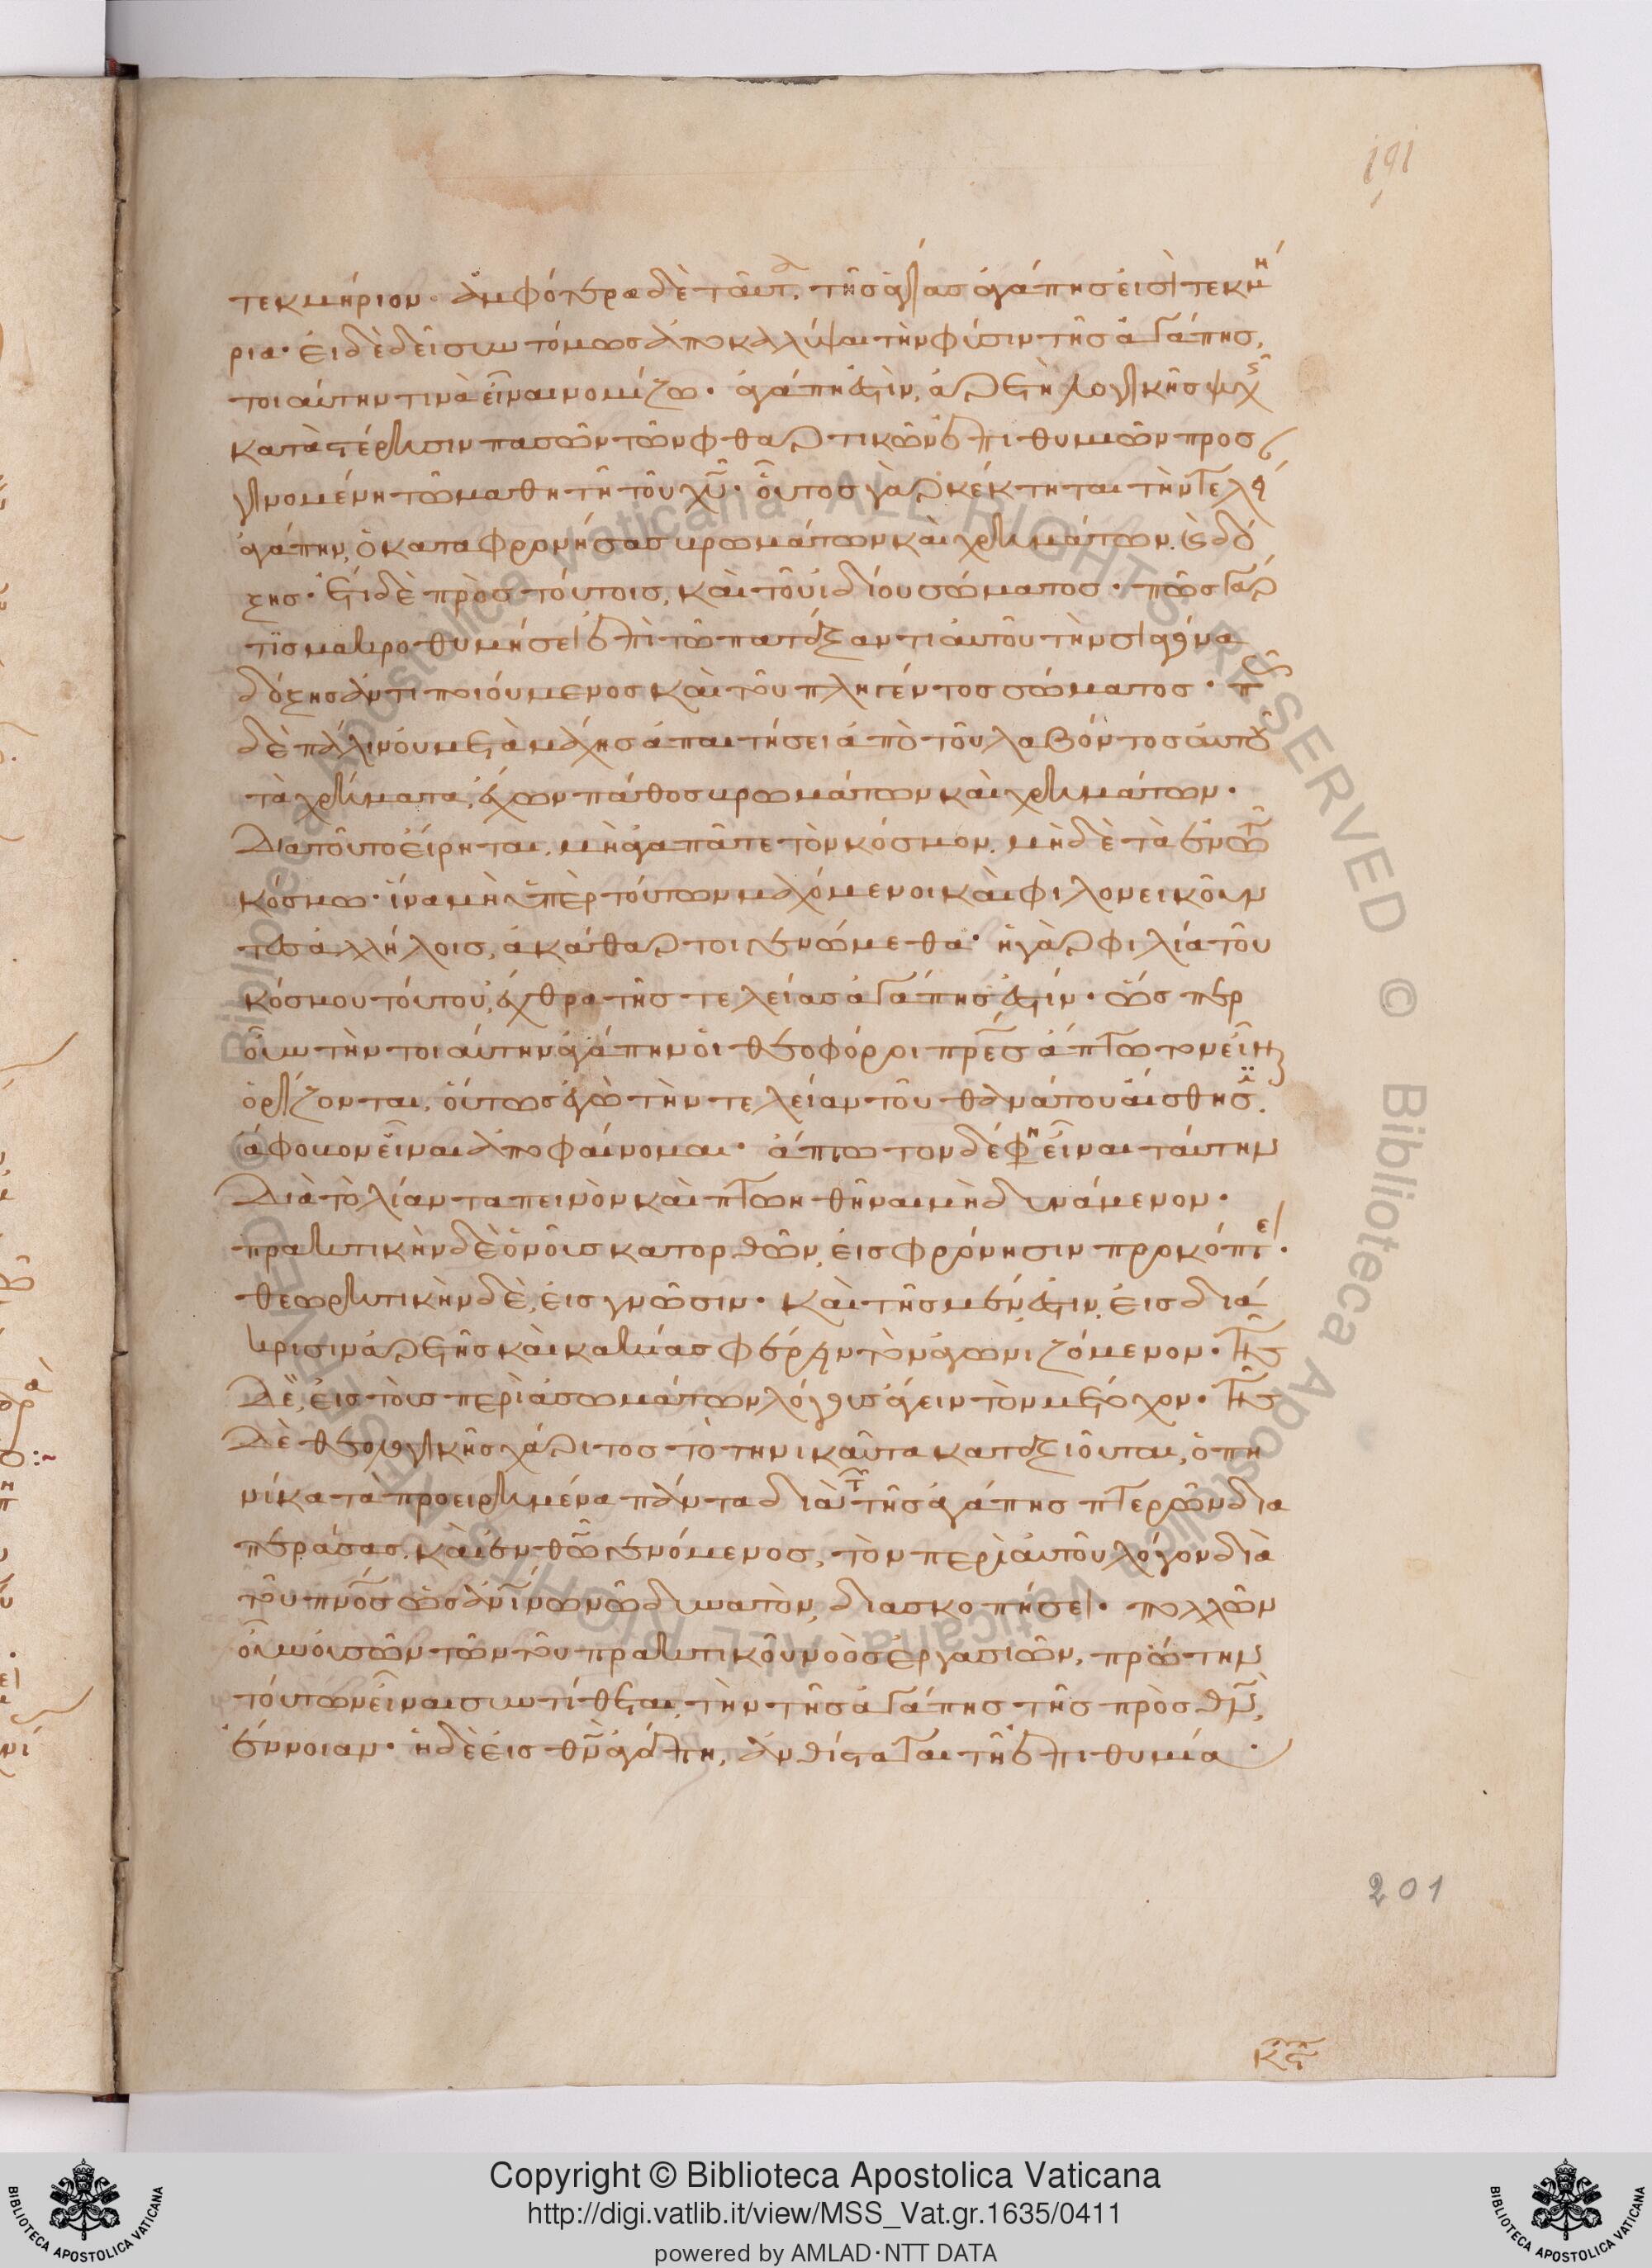 191
τεκμήριον· ἀμφότερα δὲ ταῦτα, τῆς ἁγίας ἀγάπης εἰσὶ τεκμή
ρια· εἰ δὲ δεῖ συντόμως ἀποκαλύψαι τὴν φύσιν τῆς ἀγάπης,
τοιαύτην τινὰ εἶναι νομίζω· ἀγάπη ἐστὶν, ἀρετὴ λογικῆς ψυχῆς
κατὰ στέρησιν πασῶν τῶν φθαρτικῶν ἐπιθυμιῶν προσ
γινομένη τῶ μαθητῆ τοῦ χυ· οὗτος γὰρ κέκτηται τὴν τελείαν
ἀγάπην, ὁ καταφρονήσας βρωμάτων καὶ χρημάτων, καὶ δό
ξης· ἔτι δὲ πρὸς τούτοις, καὶ τοῦ ἰδίου σώματος· πῶς γάρ
τις μακροθυμήσει ἐπὶ τῶ πατάξαντι αὐτοῦ τὴν σιαγόνα
δόξης ἀντιποιούμενος καὶ τοῦ πληγέντος σώματος· πῶς
δὲ πάλιν οὐ μετὰ μάχης ἀπαιτήσει ἀπὸ τοῦ λαβόντος αὐτοῦ
τὰ χρήματα, ἔχων πάθος βρωμάτων καὶ χρημάτων·
Διατοῦτο εἴρηται, μὴ ἀγαπᾶτε τὸν κόσμον, μὴδὲ τὰ ἐν τῶ
κόσμω· ἵνα μὴ ὑπὲρ τούτων μαχόμενοι καὶ φιλονεικοῦν
τες ἀλλήλοις, ἀκάθαρτοι γενώμεθα· ἡ γὰρ φιλία τοῦ
κόσμου τούτου, ἔχθρα τῆς τελείας ἀγάπης ἐστίν· ὥσπερ
οὖν τὴν τοιαύτην ἀγάπην οἱ θεοφόροι πρες ἄπτωτον εἶναι
ὁρίζονται, οὕτως ἐγὼ τὴν τελείαν τοῦ θανάτου αἴσθησιν
ἄφοβον εἶναι ἀποφαίνομαι· ἄπτωτον δέ φη εἶναι ταύτην
Διὰ τὸ λίαν ταπεινὸν καὶ πτωηθῆναι μὴ δυνάμενον·
πρακτικὴν δὲ ὁ νοῦς κατορθῶν, εἰς φρόνησιν προκόπτει·
θεωρητικὴν δὲ, εἰς γνῶσιν· καὶ τῆς μέν ἐστιν, εἰς διά
κρισιν ἀρετῆς καὶ κακίας φέρειν τὸν ἀγωνιζόμενον· τῆς
Δὲ, εἰς τοὺς περὶ ἀσωμάτων λόγους ἄγειν τὸν μέτοχον· τῆς
Δὲ θεολογικῆς χάριτος τὸ τηνικαῦτα καταξιοῦται, ὁπη
νίκα τὰ προειρημένα πάντα διὰ τῶν τῆς ἀγάπης πτερῶν δια
περάσας, καὶ ἐν θῶ γενόμενος, τὸν περὶ αὐτοῦ λόγον διὰ
τοῦ πνος ὡς ἀνίνων νῶ δυνατὸν, διασκοπήσει· πολλῶν
οὖν οὐσῶν τῶν τοῦ πρακτικοῦ νοὸς ἐργασιῶν, πρώτην
τούτων εἶναι συντίθεται, τὴν τῆς ἀγάπης τῆς πρὸς θν,
ἔννοιαν· ἡ δὲ εἰς θν ἀγάπη, ἀνθίσταται τῆ ἐπιθυμία·
201
κϛ
Copyright © Biblioteca Apostolica Vaticana
http://digi.vatlib.it/view/MSS_Vat.gr.1635/0411
powered by AMLAD·NTT DATA